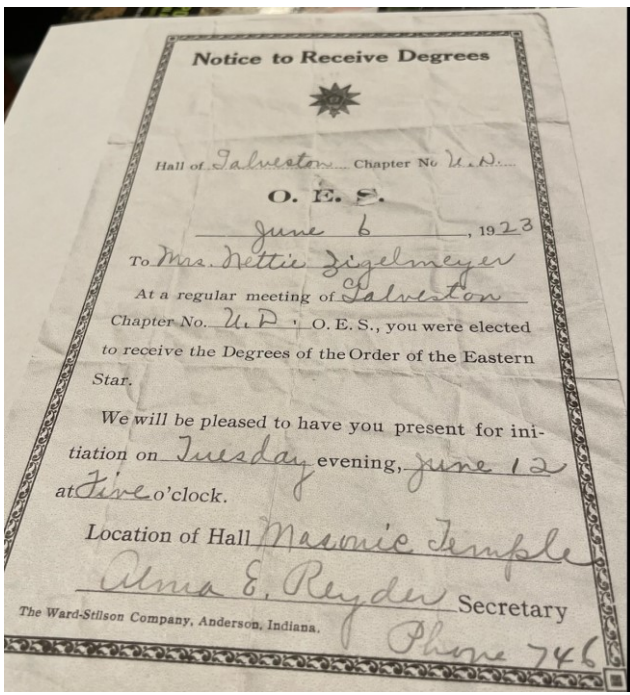 Notice to Receive Degrees
Hall of Galveston Chapter No U.D.
O. E. S.
June 6, 1923
To Mrs. Nettie Zigelmeyer
At a regular meeting of Galveston
Chapter No. U.D, O. E. S., you were elected
to receive the Degrees of the Order of the Eastern
Star.
We will be pleased to have you present for ini-
tiation on Tuesday evening, June 12
at Five o'clock.
Location of Hall Masonic Temple
Alma E. Reyder Secretary
The Ward-Stilson Company, Anderson, Indiana.
Phone 746